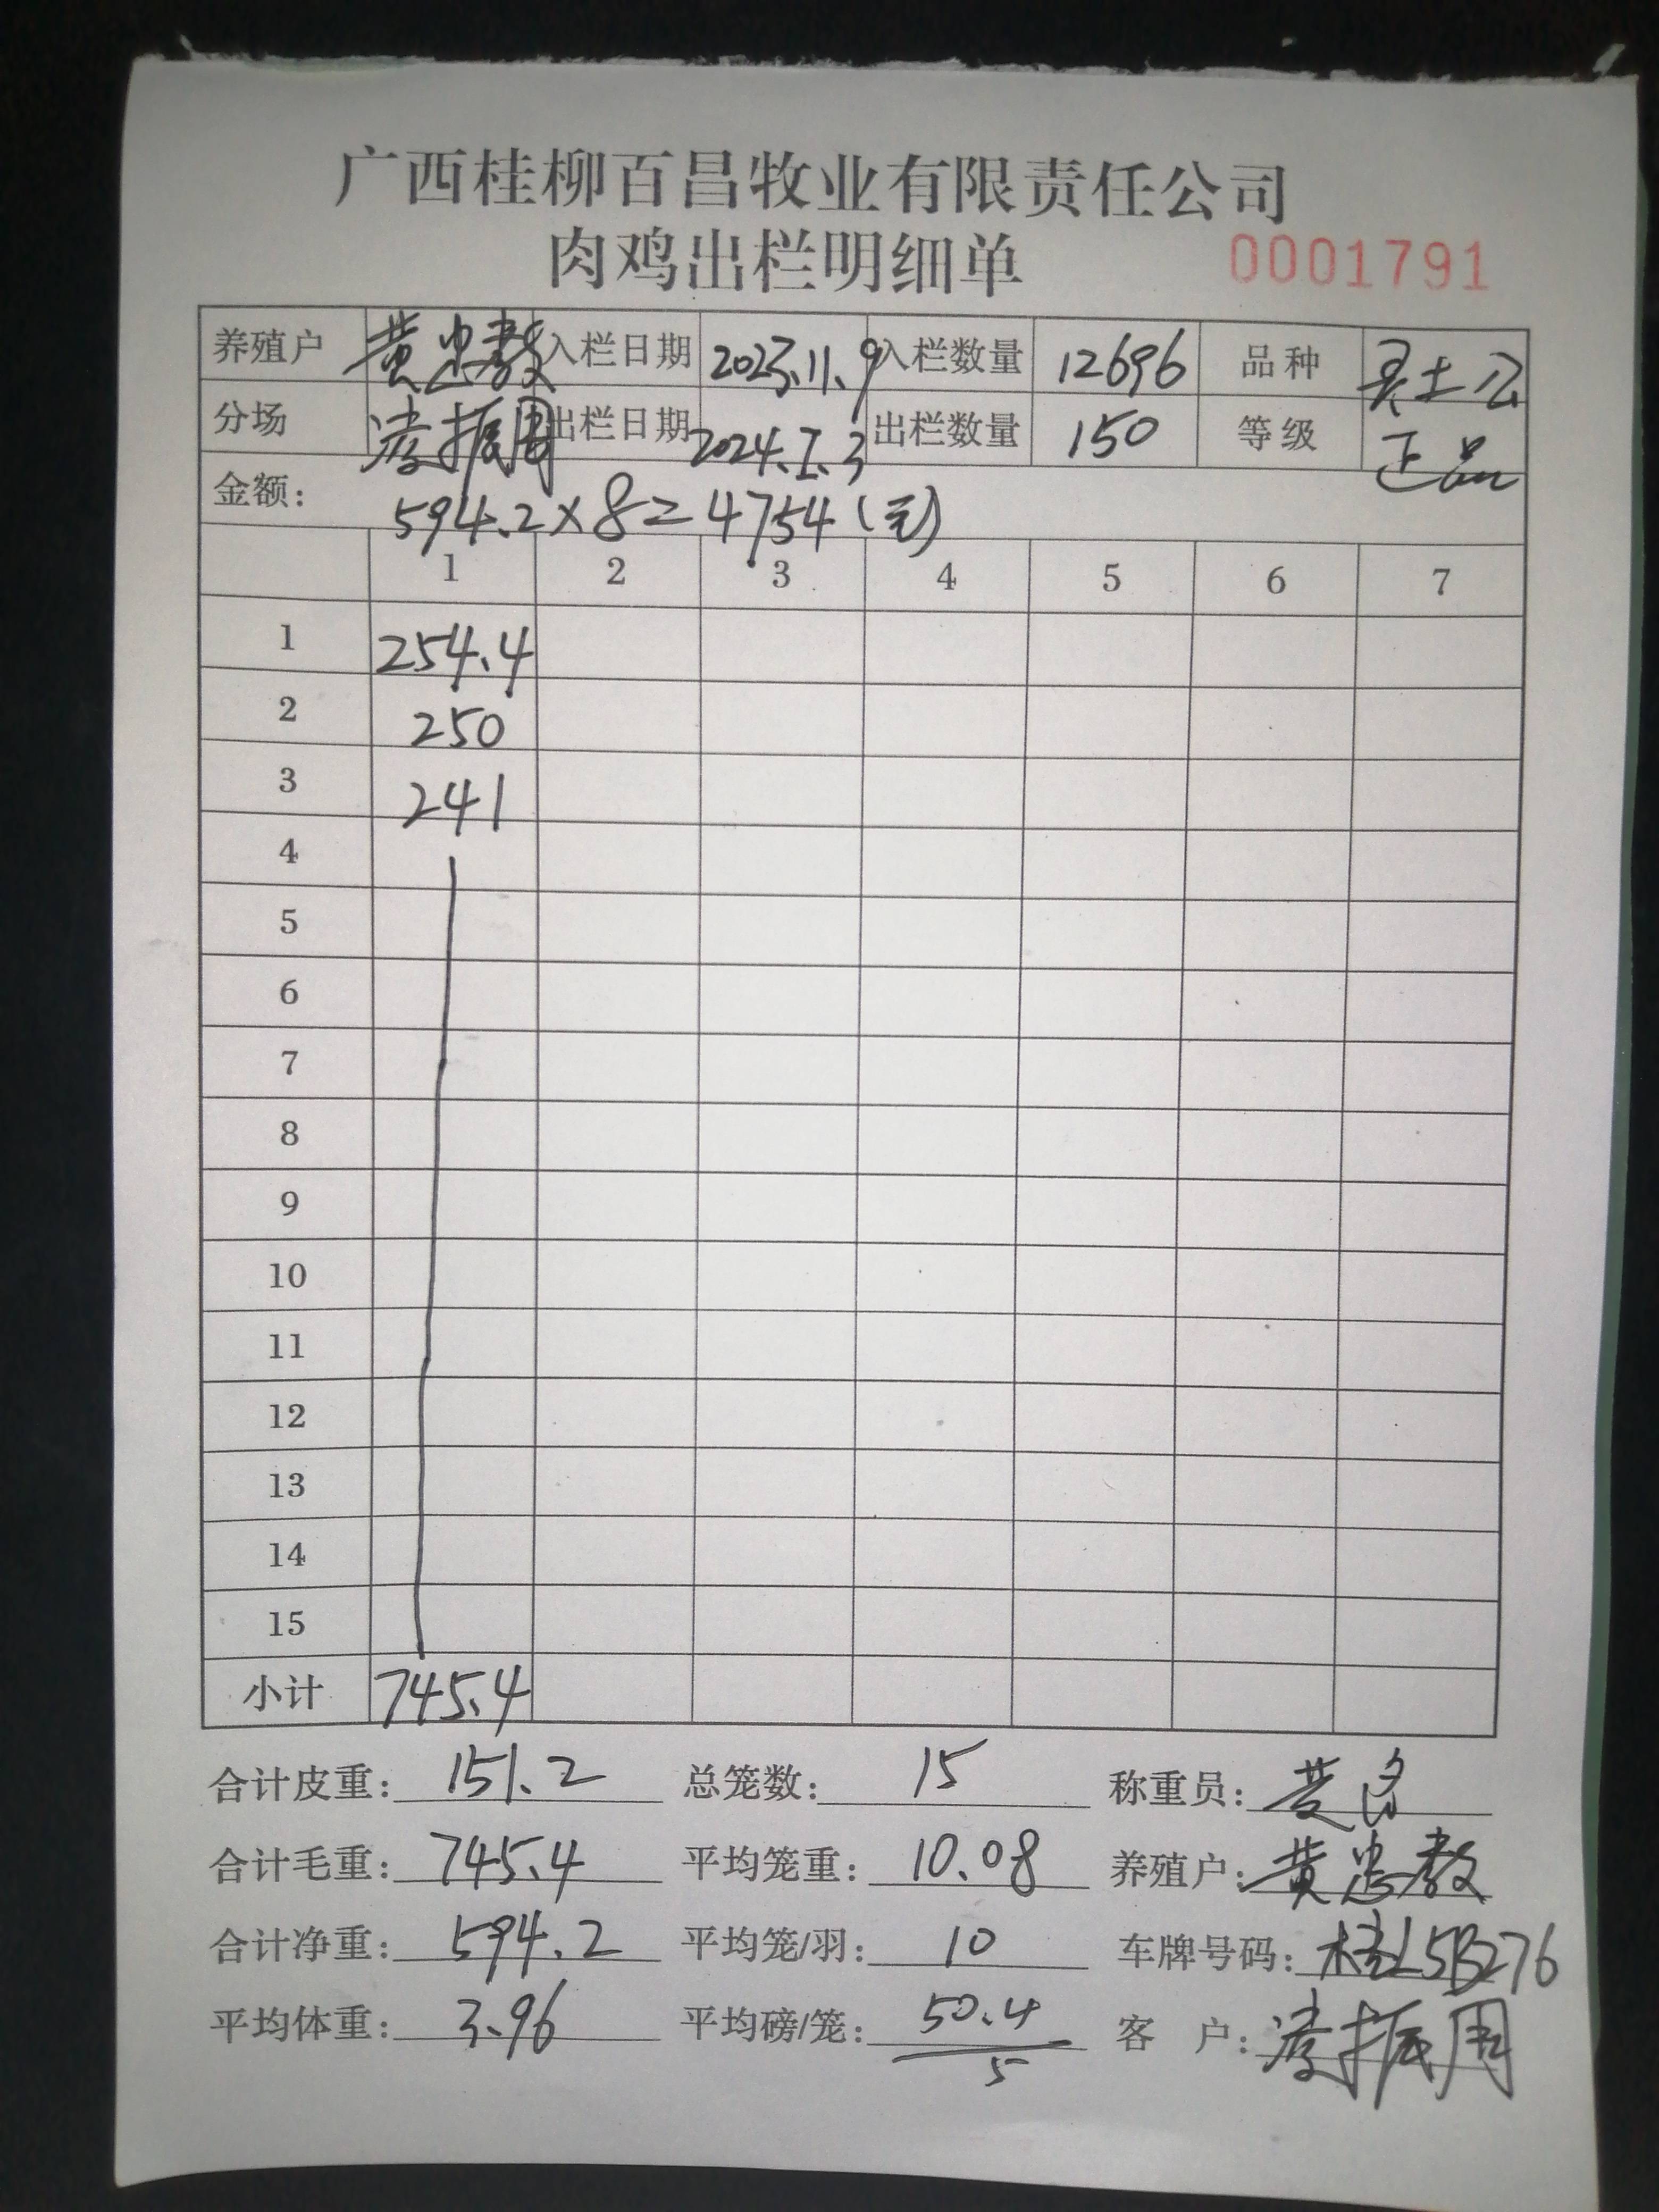 广西桂柳百昌牧业有限责任公司
肉鸡出栏明细单 0001791
养殖户 黄忠教 入栏日期 2023.11.9 入栏数量 12696 品种 土公
分场 凌振周 出栏日期 2024.1.3 出栏数量 150 等级 正品
金额: 594.2×8=4754(元)
1 2 3 4 5 6 7
1 254.4
2 250
3 241
4
5
6
7
8
9
10
11
12
13
14
15
小计 745.4
合计皮重: 151.2 总笼数: 15 称重员: 黄
合计毛重: 745.4 平均笼重: 10.08 养殖户: 黄忠教
合计净重: 594.2 平均笼/羽: 10 车牌号码: 桂L5B276
平均体重: 3.96 平均磅/笼: 50.4 客 户: 凌振周
5